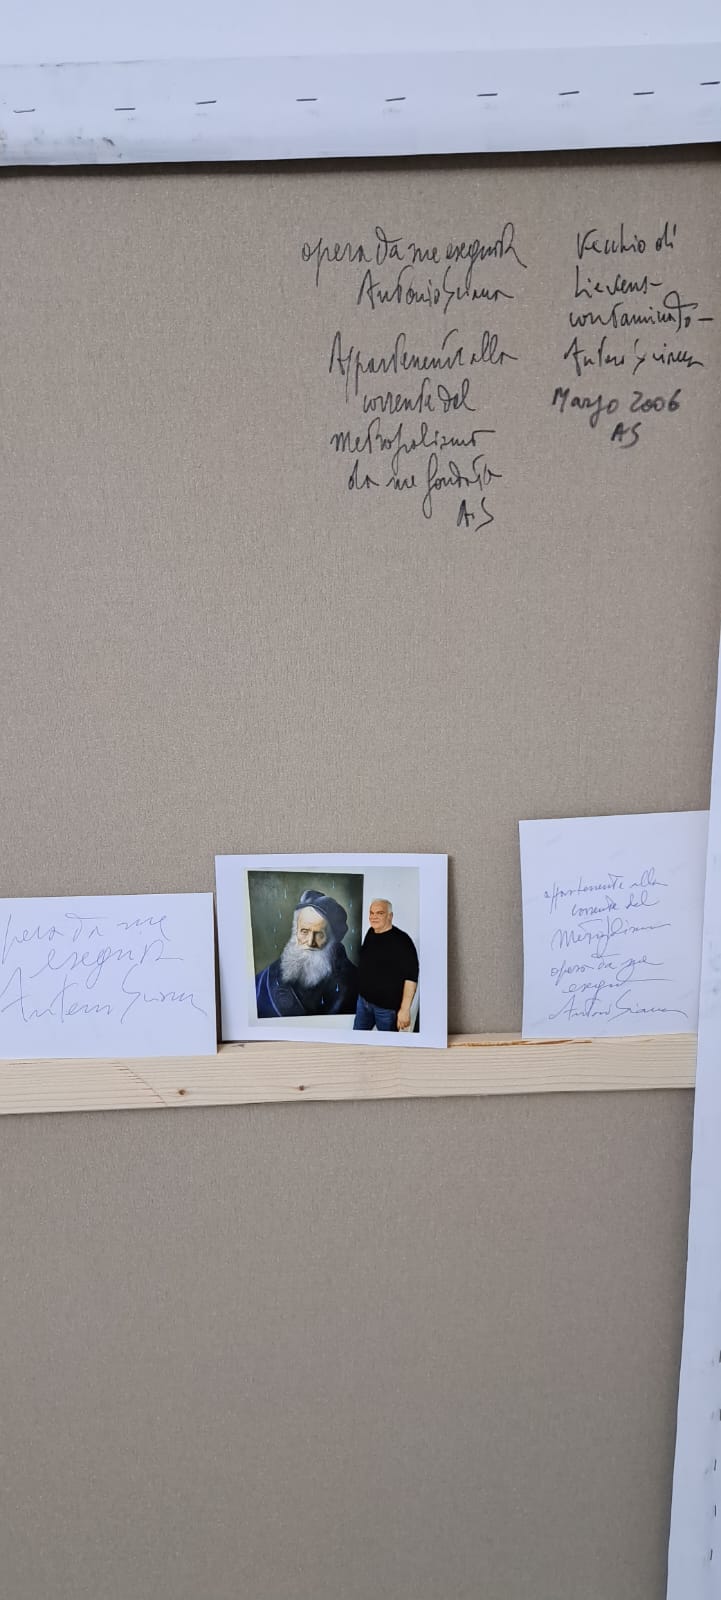 opera da me eseguita
Antonio Sciacca
Appartenente alla
corrente del
metropolismo
da me fondata
AS
Vecchio di
Lievens
contaminato
Antonio Sciacca
Marzo 2006
AS
opera da me
eseguita
Antonio Sciacca
appartenente alla
corrente del
Metropolismo
opera da me
eseguita
Antonio Sciacca